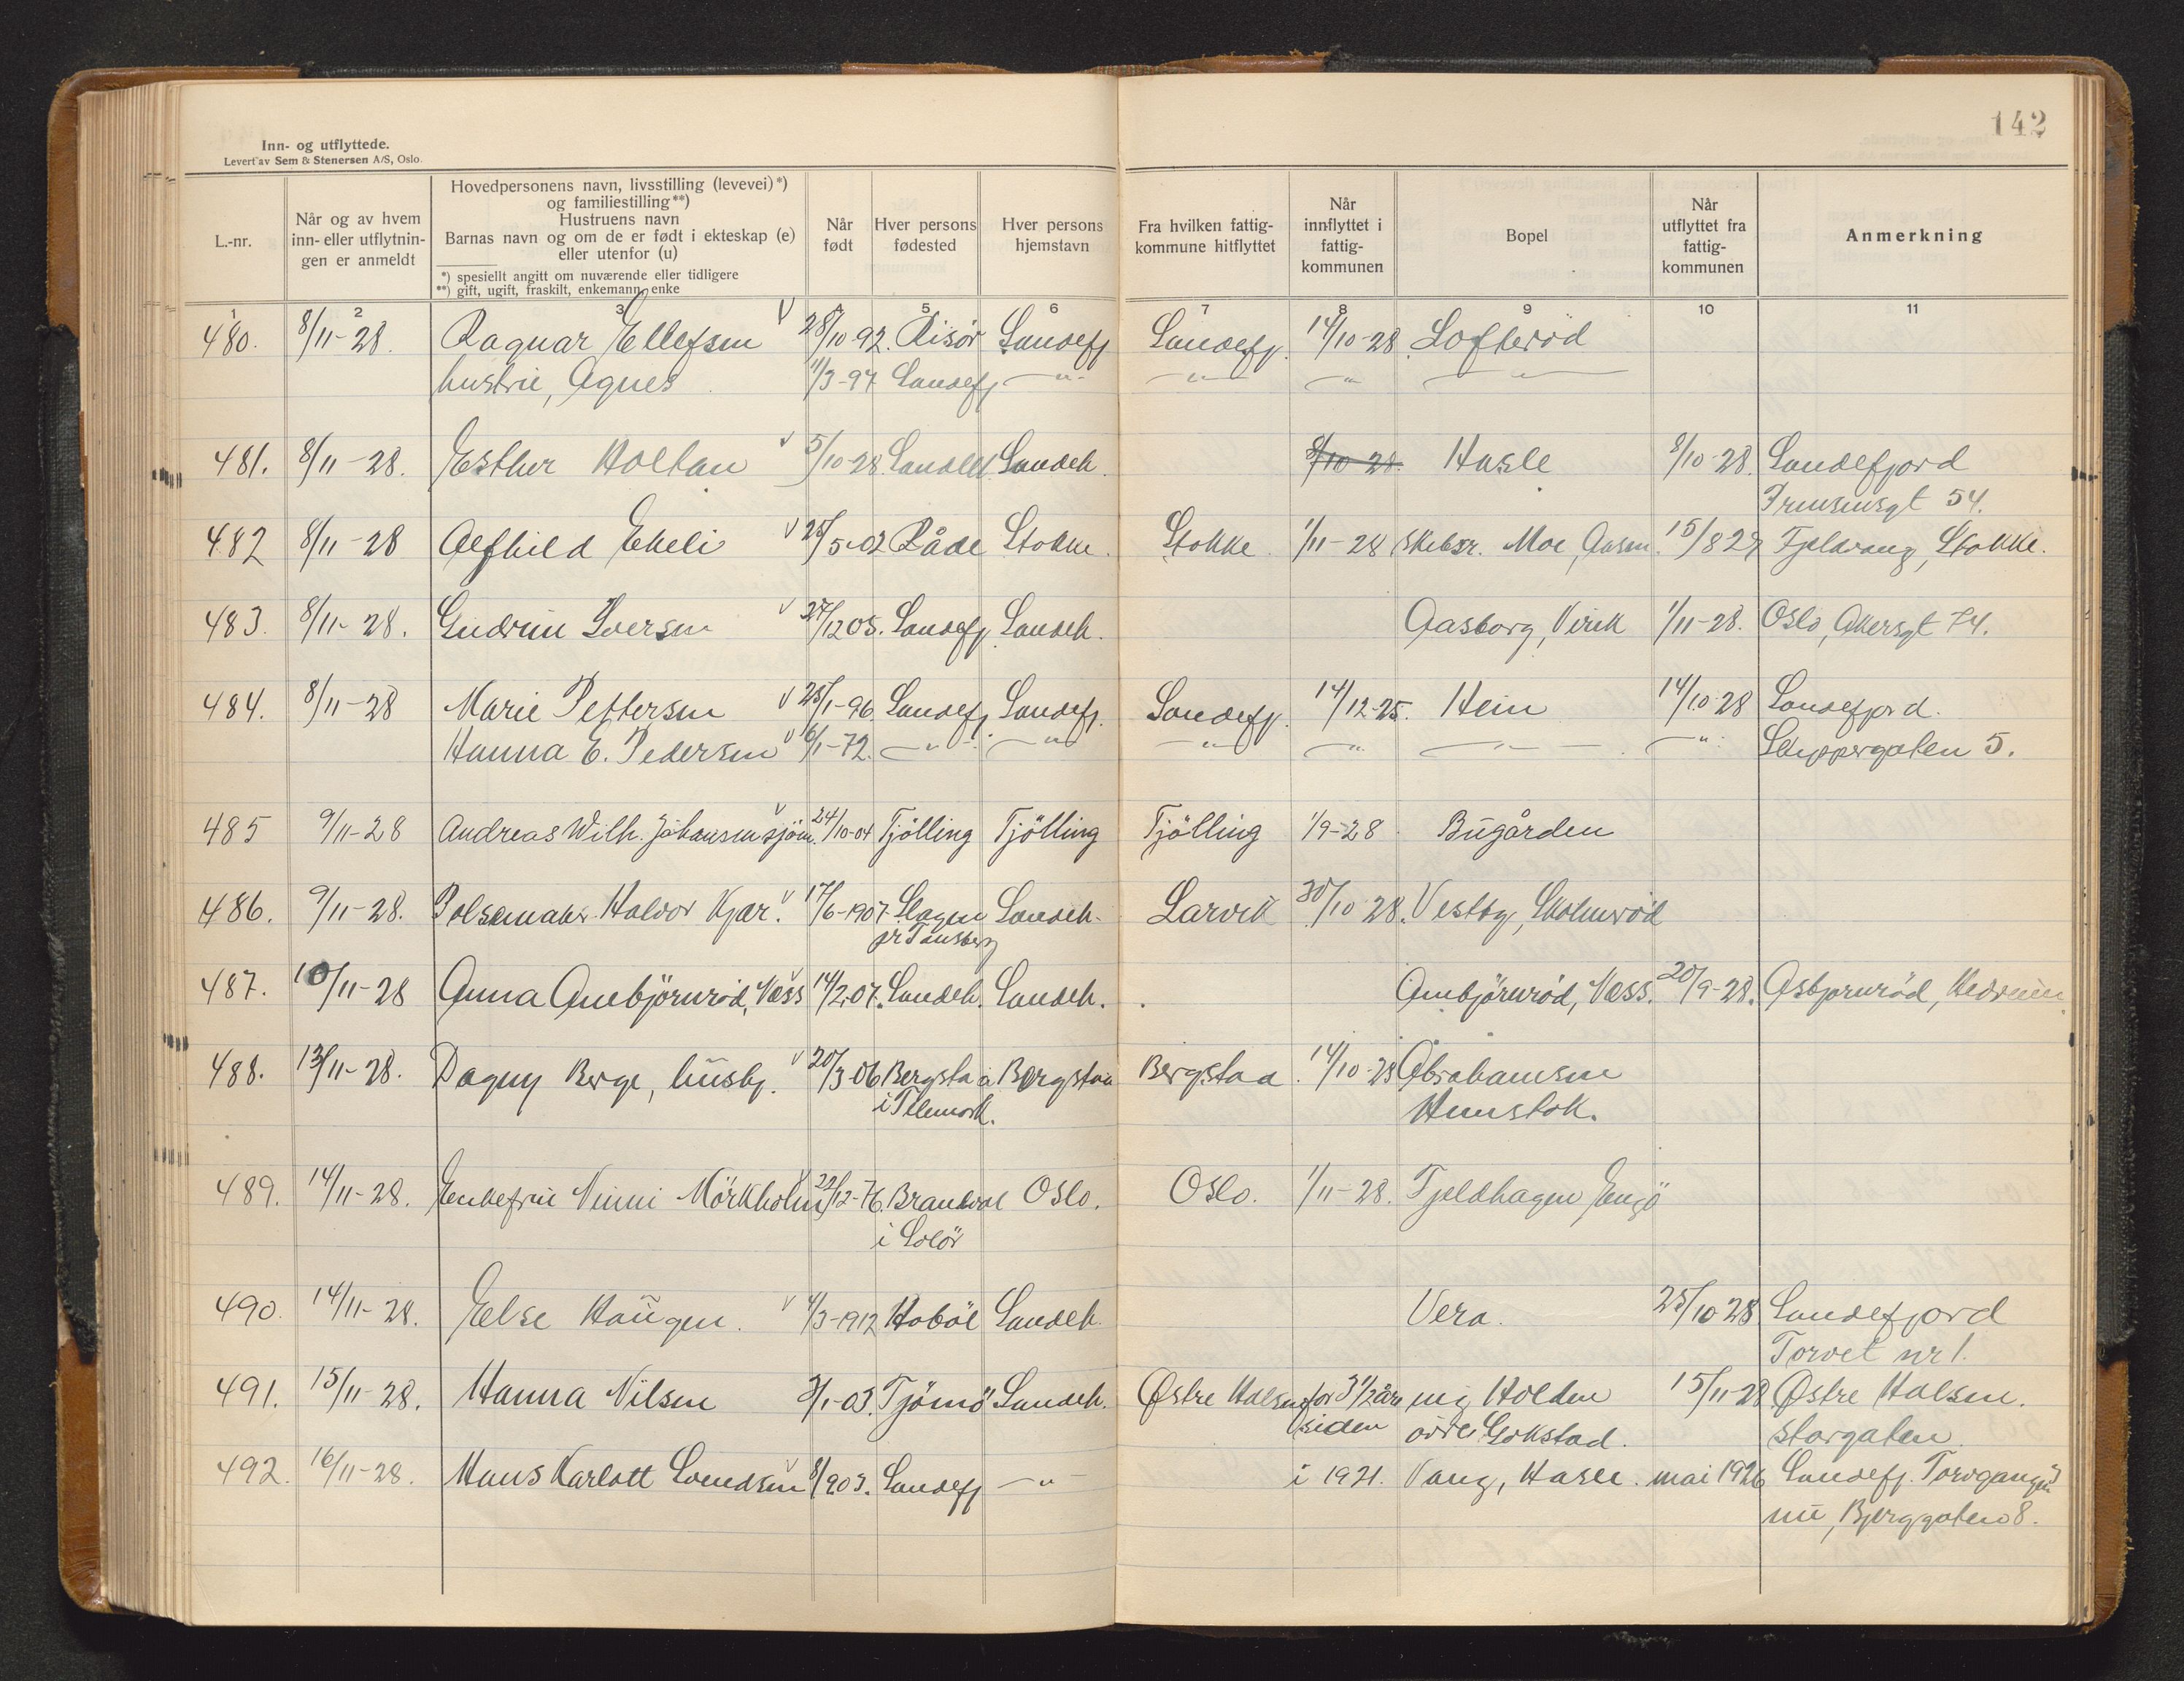 142
Inn- og utflyttede.
Levert av Sem & Stenersen A/S, Oslo.
L.-nr.
Når og av hvem
inn- eller utflytnin-
gen er anmeldt
Hovedpersonens navn, livsstilling (levevei)*)
og familiestilling**)
Hustruens navn
Barnas navn og om de er født i ekteskap (e)
eller utenfor (u)
*) spesielt angitt om nuværende eller tidligere
**) gift, ugift, fraskilt, enkemann, enke
Når
født
Hver persons
fødested
Hver persons
hjemstavn
Fra hvilken fattig-
kommune hitflyttet
Når
innflyttet i
fattig-
kommunen
Bopel
Når
utflyttet fra
fattig-
kommunen
Anmerkning
1 2 3 5 6 7 8 9 10 11
480. 8/11-28. Ragnar Ellefsen 28/10-92. Risör Sandefj Sandefj. 14/10-28 Lofteröd
hustru, Agnes 11/3-97 Sandefj -"- -"- -"- -"-
481. 8/11-28. Esther Holtan 5/10-28. Sandeh. Sandeh. 8/10-28. Hasle 8/10-28. Sandefjord
Prinsensgt 54.
482 8/11-28 Alfhild Ekeli 25/5-02 Råde Stokke. Stokke. 1/11-28 Skibsr. Moe, Aasen. 15/8 29 Fjeldvang, Stokke.
483. 8/11-28. Gudrun Iversen 27/12 05. Sandefj Sandeh. Aasborg, Virik 1/11-28. Oslo, Akersgt 74.
484. 8/11-28 Marie Pettersen 25/1-96. Sandefj Sandefj. Sandefj. 14/12-25. Hein 14/10-28 Sandefjord.
Hanna E. Pedersen 6/1-72. -"- -"- -"- -"- -"- -"- Skippergaten 5.
485 9/11-28 Andreas Wilh. Johansen sjöm. 24/10-04 Tjölling Tjölling Tjölling 1/9-28 Bugården
486. 9/11-28. Pölsemaker Halvor Kjær. 17/6-1907. Slagen Sandeh. Larvik 30/10 28. Vestby, Skolmeröd
pr Tönsberg
487. 10/11-28 Anna Anebjörnröd, Væss 14/2.07. Sandeh. Sandeh. Anebjörnröd, Væss. 20/9-28. Asbjornröd, Hedrum
488. 13/11-28. Dagny Berge, hush. 20/3-06 Bergstad Bergstad Bergstad. 14/10-28 Abrahamsen
i Telemark. Hunstok.
489. 14/11-28. Enkefrue Ninni Mörkholm 22/12-76. Brandval Oslo. Oslo. 1/11-28. Fjeldhagen Engö
i Solör
490. 14/11-28. Else Haugen. 4/3-1912 Hoböl Sandeh. Vera. 25/10 28 Sandefjord
Torvet nr 1.
491. 15/11-28. Hanna Nilsen 3/1-03. Tjömö Sandeh. Østre Halsen for 3 1/2 år Holden 15/11-28 Østre Halsen.
siden Gokstad. storgaten
492. 16/11-28. Hans Karlott Svendsen 8/1903. Sandefj -"- i 1921. Vang, Hasle. mai 1926 Sandefj. Torvgangen 3
nu, Bjerggaten 8.